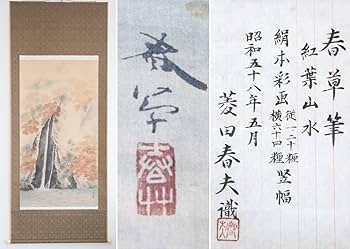 春草筆
紅葉山水
絹本彩画
従一二十糎
横六十四糎
竪幅
昭和五十八年五月
菱田春夫識
春草
春草